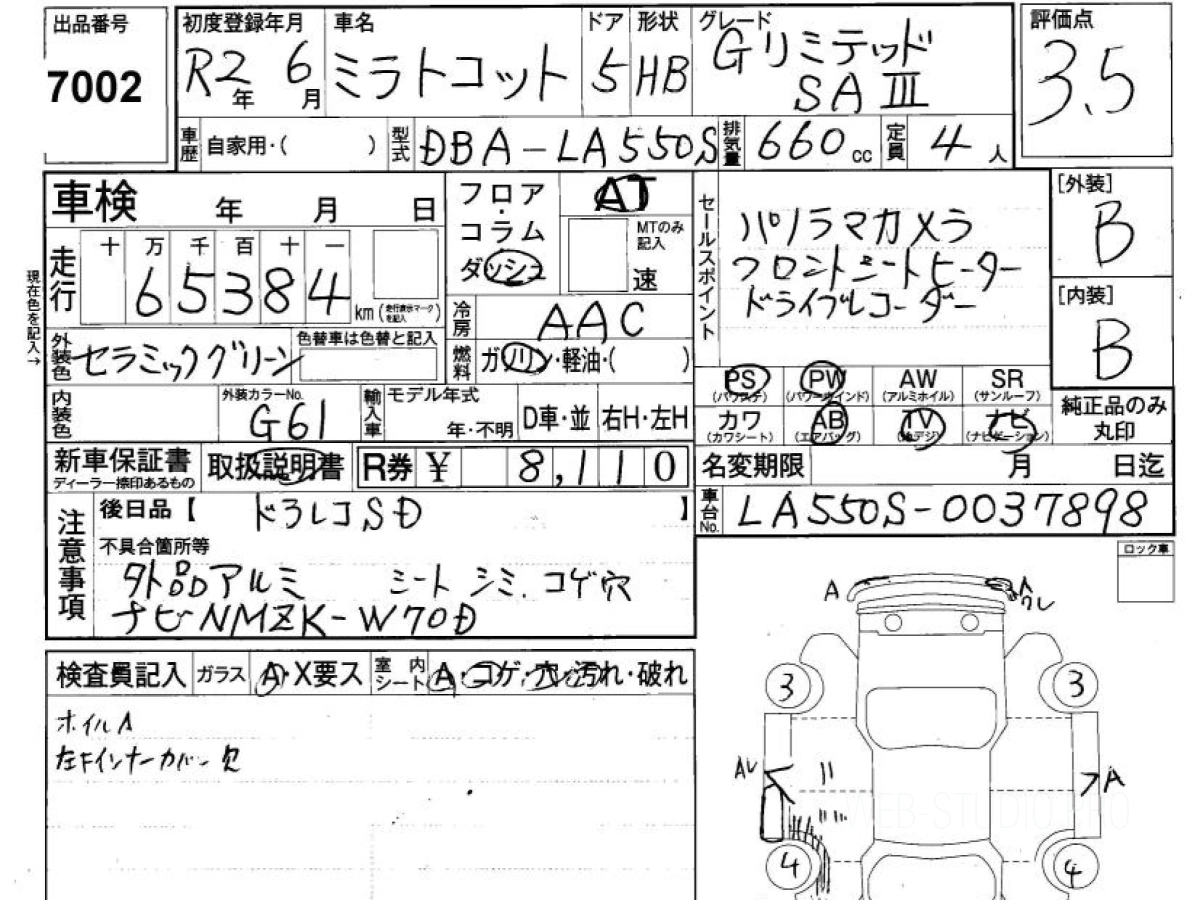 出品番号
7002
初度登録年月
R2年 6月
車名
ミラトコット
ドア
5
形状
HB
グレード
Gリミテッド
SAⅢ
評価点
3.5
車歴
自家用・( )
型式
DBA-LA550S
排気量
660cc
定員
4人
車検 年 月 日
走行
十 万 千 百 十 一
65384
km(走行表示マークを記入)
現在色を記入→
外装色
セラミックグリーン
色替車は色替と記入
内装色
外装カラーNo.
G61
輸入車
モデル年式
年・不明
D車・並
右H・左H
フロア・コラム
ダッシュ
AT
MTのみ記入
速
冷房
AAC
燃料
ガソリン・軽油・( )
セールスポイント
パノラマカメラ
フロントシートヒーター
ドライブレコーダー
[外装]
B
[内装]
B
PS (パワステ)
PW (パワーウインド)
AW (アルミホイル)
SR (サンルーフ)
カワ (カワシート)
AB (エアバッグ)
TV (地デジ)
ナビ (ナビゲーション)
純正品のみ
丸印
新車保証書
ディーラー捺印あるもの
取扱説明書
R券 ¥ 8,110
名変期限 月 日迄
車台No.
LA550S-0037898
注意事項
後日品【 ドラレコSD 】
不具合箇所等
外品アルミ シートシミ、コゲ穴
ナビNMZK-W70D
ロック車
検査員記入
ガラス
A・X要ス
室内シート
A・コゲ・穴・汚れ・破れ
ホイルA
左Fインナーカバー欠
A
A
ワレ
3
3
AU
A
4
4
WEB-STUDIO.PRO